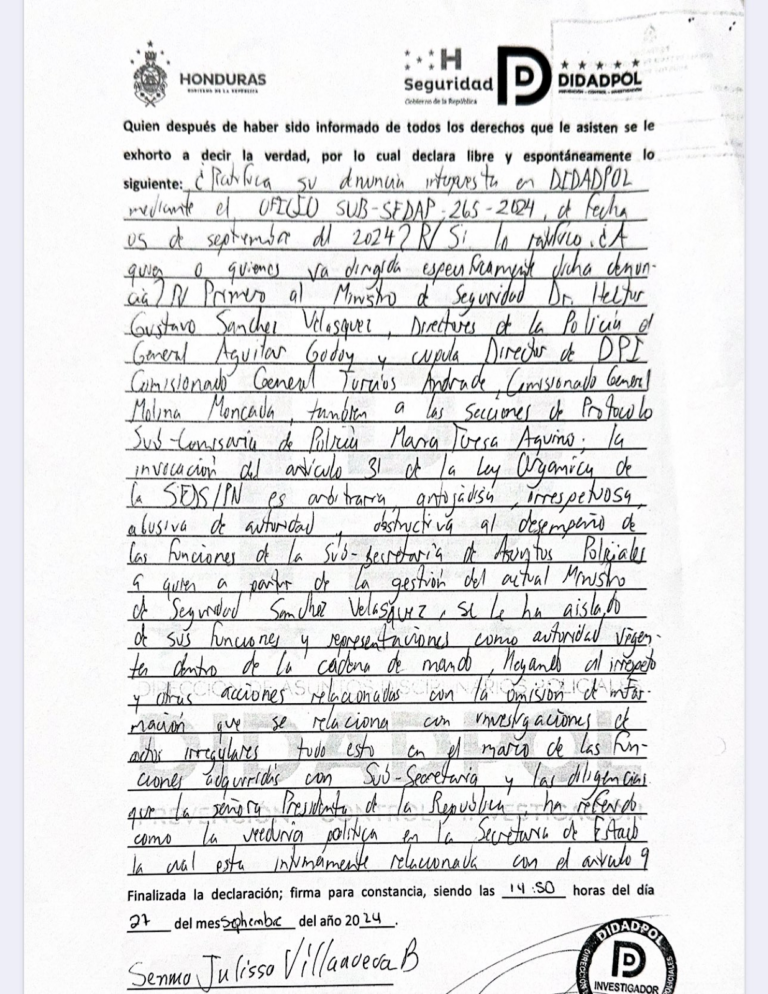 HONDURAS
GOBIERNO DE LA REPÚBLICA
H
Seguridad
Gobierno de la República
D
DIDADPOL
Quien después de haber sido informado de todos los derechos que le asisten se le
exhorto a decir la verdad, por lo cual declara libre y espontáneamente lo
siguiente: ¿Ratifica su denuncia interpuesta en DIDADPOL
mediante el OFICIO SUB-SEDAP-265-2024, de fecha
05 de septiembre del 2024? R/ Si lo ratifico. ¿A
quien o quienes va dirigida especificamente dicha denun-
cia? R/ Primero al Ministro de Seguridad Dr. Hector
Gustavo Sanchez Velasquez, Directores de la Policia el
General Aguilar Godoy y cupula Director de DPI
Comisionado General Turcios Andrade, Comisionado General
Molina Moncada, tambien a las Secciones de Protocolo
Sub-Comisaria de Policia Maria Teresa Aquino; la
invocación del articulo 31 de la Ley Organica de
la SEDS/PN es arbitraria antojadisa, irrespetuosa,
abusiva de autoridad y obstructiva al desempeño de
las funciones de la Sub-Secretaria de Asuntos Policiales
a quien a partir de la gestión del actual Ministro
de Seguridad Sanchez Velasquez, se le ha aislado
de sus funciones y representaciones como autoridad vigen-
te dentro de la cadena de mando, llegando al irrespeto
y otras acciones relacionadas con la omisión de infor-
mación que se relaciona con investigaciones de
actos irregulares todo esto en el marco de las fun-
ciones adquiridas con Sub-Secretaria y las diligencias
que la señora Presidenta de la Republica ha referido
como la veeduria politica en la Secretaria de Estado
la cual esta intimamente relacionada con el articulo 9
Finalizada la declaración; firma para constancia, siendo las 14:50 horas del día
27 del mes Septiembre del año 2024.
Senma Julissa Villanueva B
DIDADPOL
INVESTIGADOR